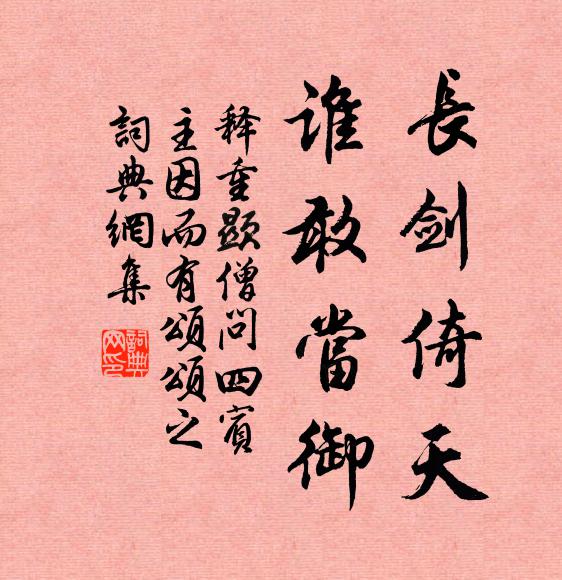 長剑倚天
誰敢當御
释重顯僧问四賓
主因而有頌頌之
詞典網集
詞典
网印